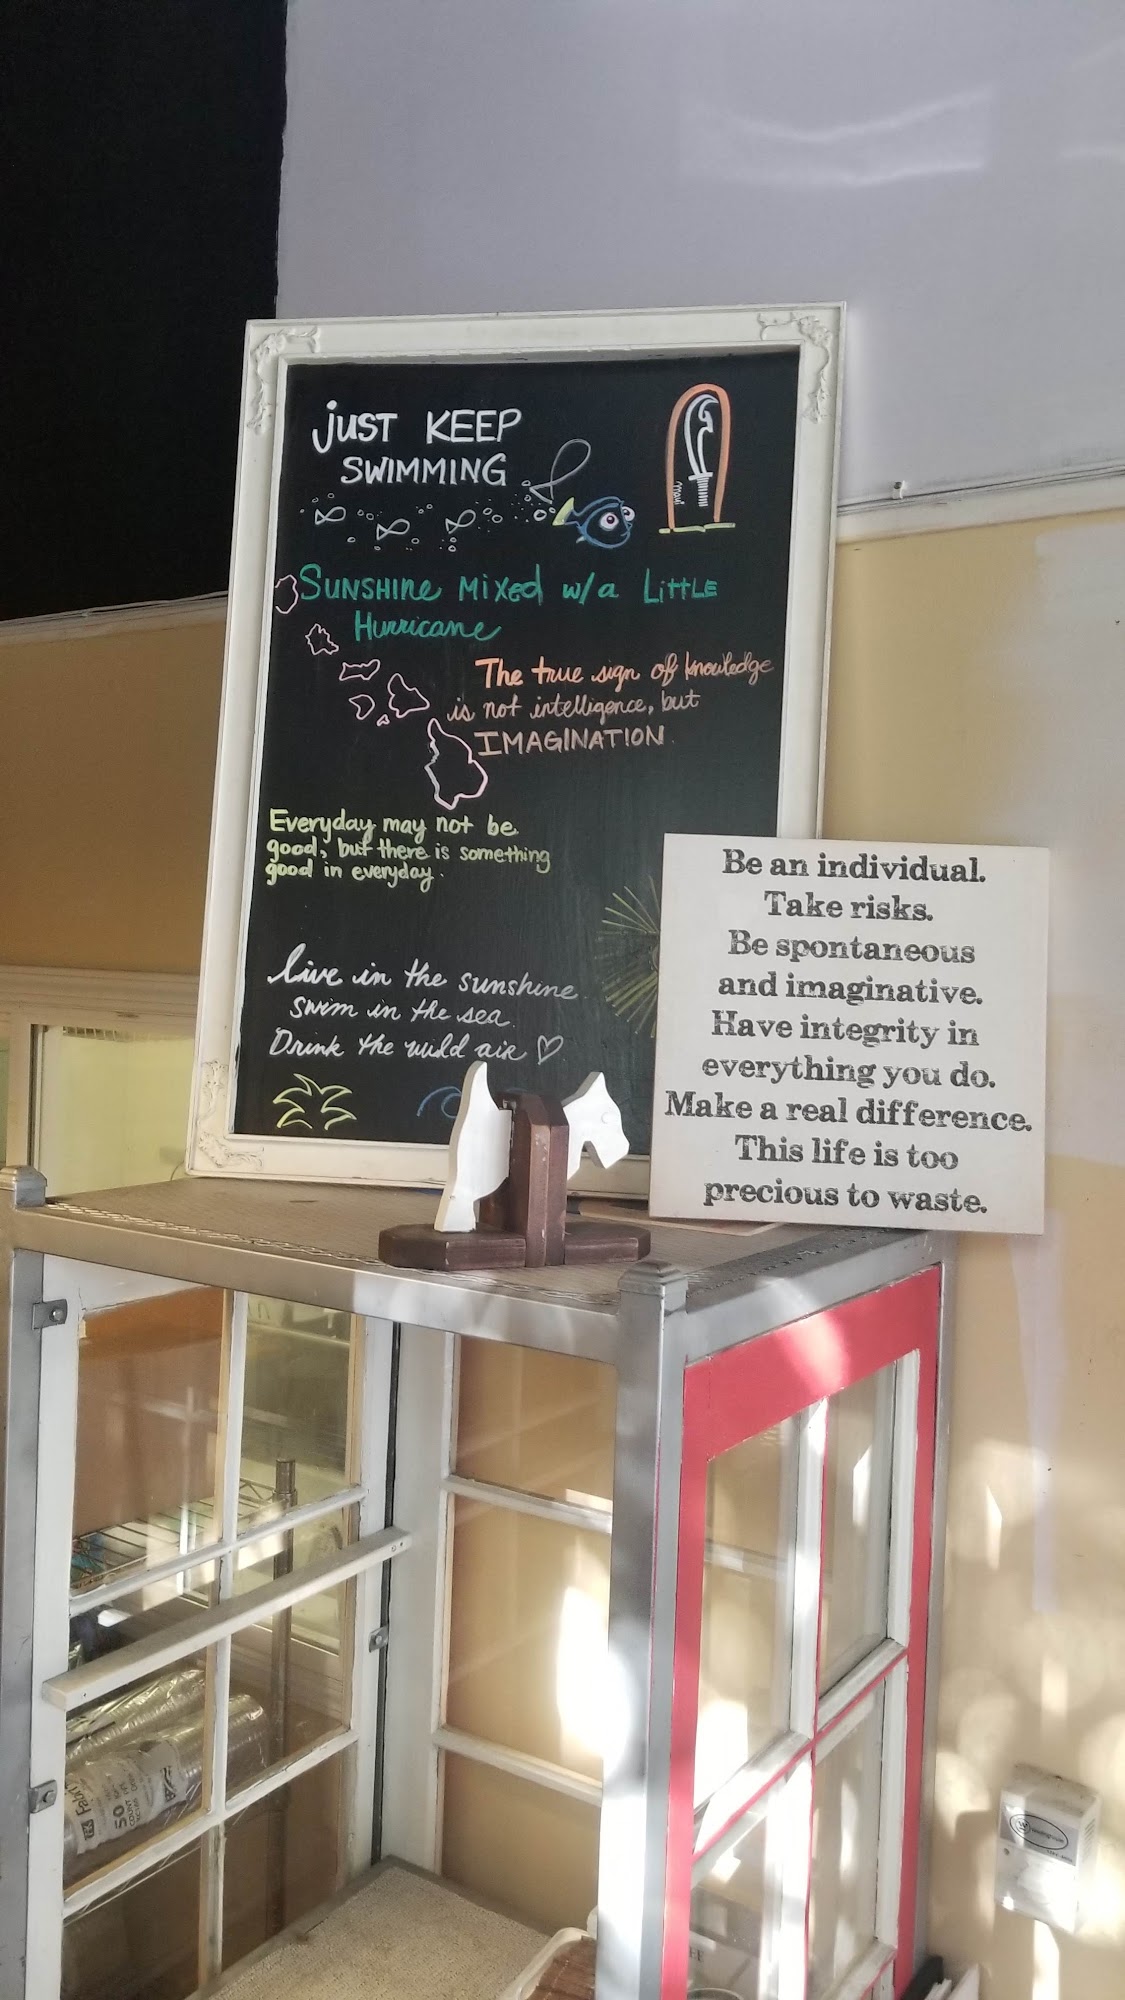 just KEEP
SWIMMING
maui
SUNSHINE MIXED w/a LITTLE
Hurricane
The true sign of knowledge
is not intelligence, but
IMAGINATION.
Everyday may not be
good, but there is something
good in everyday.
Live in the sunshine
swim in the sea
Drink the wild air
Be an individual.
Take risks.
Be spontaneous
and imaginative.
Have integrity in
everything you do.
Make a real difference.
This life is too
precious to waste.
50
COUNT
Westinghouse